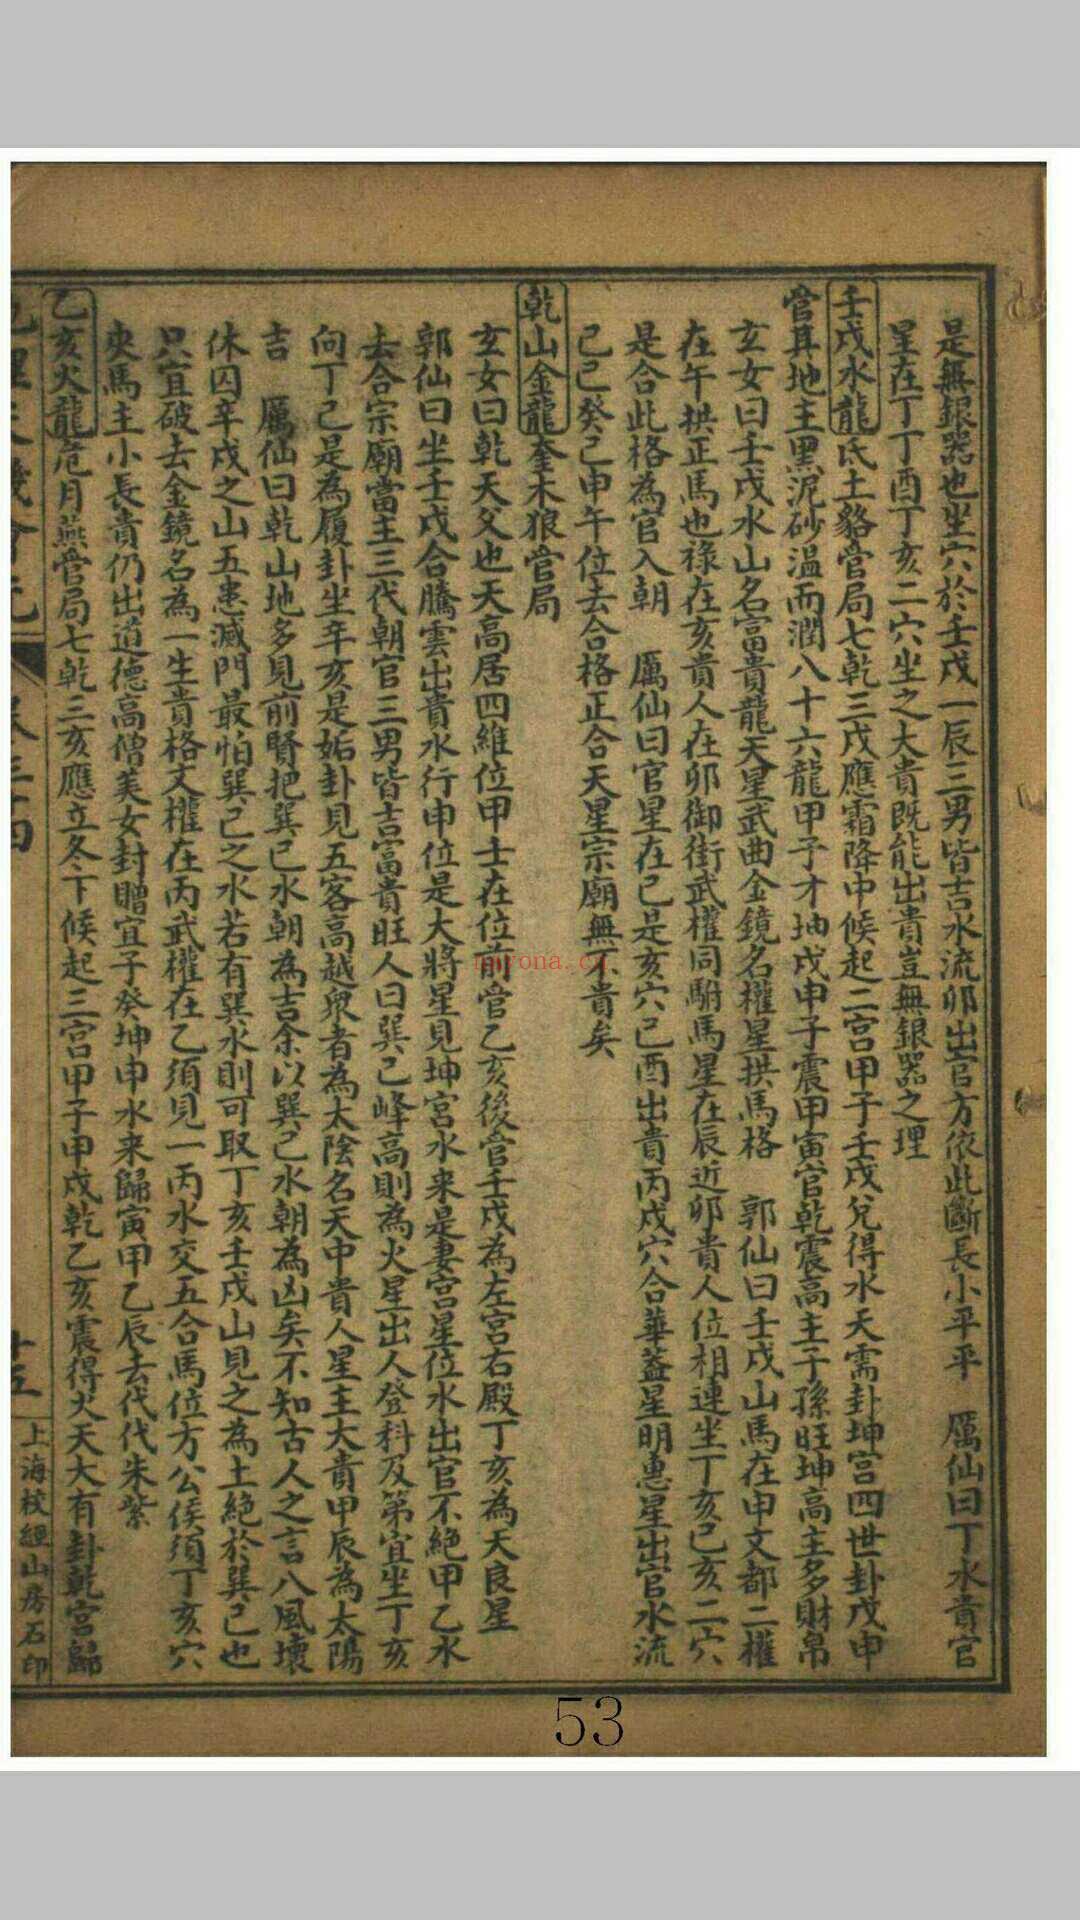 是無銀器也坐穴於壬戌一辰三男皆吉水流卯出官方依此斷長小平平　厲仙曰丁水貴官
星在丁丁酉丁亥二穴坐之大貴既能出貴豈無銀器之理
壬戌水龍氐土貉管局七乾三戌應霜降中候起二宮甲子壬戌兌得水天需卦坤宮四世卦戊申
管其地主黑泥砂溫而潤八十六龍甲子才坤戌申子震甲寅官乾震高主子孫旺坤高主多財帛
玄女曰壬戌水山名富貴龍天星武曲金鏡名權星拱馬格　郭仙曰壬戌山馬在申文都二權
在午拱正馬也祿在亥貴人在卯御街武權同駙馬星在辰近卯貴人位相連坐丁亥己亥二穴
是合此格為官入朝　厲仙曰官星在己是亥穴己酉出貴丙戌穴合華蓋星明惠星出官水流
己巳癸己申午位去合格正合天星宗廟無不貴矣
乾山金龍奎木狼管局
玄女曰乾天父也天高居四維位甲士在位前管乙亥後管壬戌為左宮右殿丁亥為天良星
郭仙曰坐壬戌合騰雲出貴水行申位是大將星見坤宮水來是妻宮星位水出官不絕甲乙水
去合宗廟當主三代朝官三男皆吉富貴旺人曰巽巳峰高則為火星出人登科及第宜坐丁亥
向丁己是為履卦坐辛亥是姤卦見五客高越眾者為太陰名天中貴人星主大貴甲辰為太陽
吉　厲仙曰乾山地多見前賢把巽巳水朝為吉余以巽巳水朝為凶矣不知古人之言八風壞
休囚辛戌之山五患滅門最怕巽巳之水若有巽水則可取丁亥壬戌山見之為土絕於巽巳也
只宜破去金鏡名為一生貴格文權在丙武權在乙須見一丙水交五合馬位方公侯須丁亥穴
夾馬主小長貴仍出道德高僧美女封贈宜子癸坤申水来歸寅甲乙辰去代代朱紫
乙亥火龍危月燕管局七乾三亥應立冬下候起三宮甲子甲戌乾乙亥震得火天大有卦乾宮歸
上海校經山房石印
53